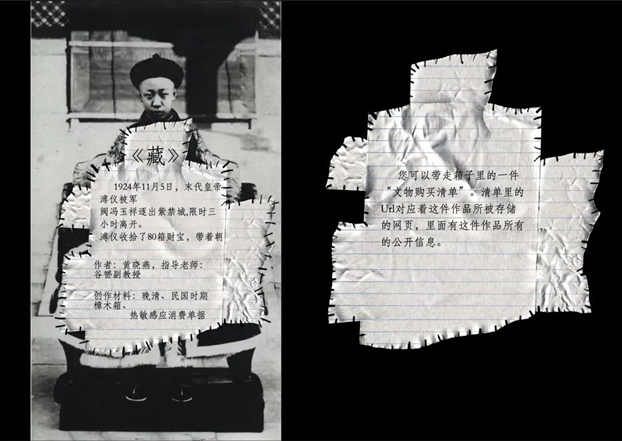 《藏》
1924年11月5日，末代皇帝
溥仪被军
阀冯玉祥逐出紫禁城,限时三
小时离开。
溥仪收拾了80箱财宝，带着朝
作者：黄晓燕，指导老师：
谷赟副教授
创作材料：晚清、民国时期
樟木箱、
热敏感应消费单据
您可以带走箱子里的一件
“文物购买清单”。清单里的
Url对应着这件作品所被存储
的网页，里面有这件作品所有
的公开信息。